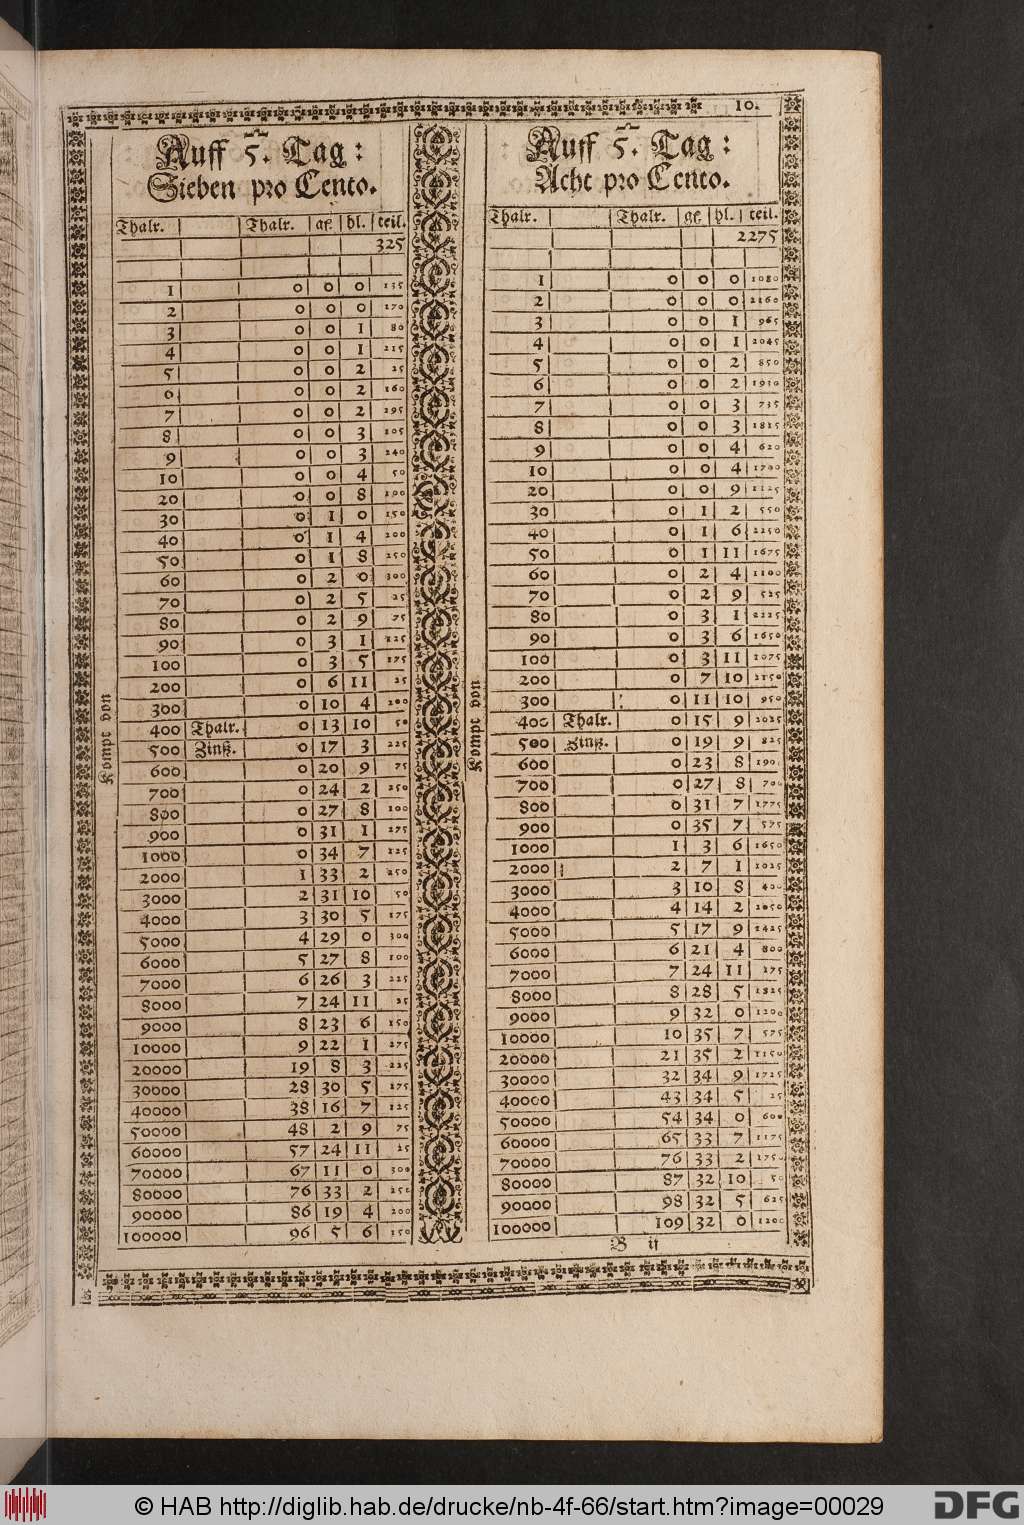 10.
Auff 5. Tag:
Sieben pro Cento.
Thalr. Thalr. gſ. hl. teil.
325
1 0 0 0 135
2 0 0 0 270
3 0 0 1 80
4 0 0 1 215
5 0 0 2 25
6 0 0 2 160
7 0 0 2 295
8 0 0 3 105
9 0 0 3 240
10 0 0 4 50
20 0 0 8 100
30 0 1 0 150
40 0 1 4 200
50 0 1 8 250
60 0 2 0 300
70 0 2 5 25
80 0 2 9 75
90 0 3 1 125
100 0 3 5 175
200 0 6 11 25
300 0 10 4 200
400 Thalr. 0 13 10 50
500 Zinß. 0 17 3 225
600 0 20 9 75
700 0 24 2 250
800 0 27 8 100
900 0 31 1 275
1000 0 34 7 125
2000 1 33 2 250
3000 2 31 10 50
4000 3 30 5 175
5000 4 29 0 300
6000 5 27 8 100
7000 6 26 3 225
8000 7 24 11 25
9000 8 23 6 150
10000 9 22 1 275
20000 19 8 3 225
30000 28 30 5 175
40000 38 16 7 125
50000 48 2 9 75
60000 57 24 11 25
70000 67 11 0 300
80000 76 33 2 250
90000 86 19 4 200
100000 96 5 6 150
Kompt von
Auff 5. Tag:
Acht pro Cento.
Thalr. Thalr. gſ. hl. teil.
2275
1 0 0 0 1080
2 0 0 0 2160
3 0 0 1 965
4 0 0 1 2045
5 0 0 2 850
6 0 0 2 1930
7 0 0 3 735
8 0 0 3 1815
9 0 0 4 620
10 0 0 4 1700
20 0 0 9 1125
30 0 1 2 550
40 0 1 6 2250
50 0 1 11 1675
60 0 2 4 1100
70 0 2 9 525
80 0 3 1 2225
90 0 3 6 1650
100 0 3 11 1075
200 0 7 10 2150
300 0 11 10 950
400 Thalr. 0 15 9 2025
500 Zinß. 0 19 9 825
600 0 23 8 1900
700 0 27 8 700
800 0 31 7 1775
900 0 35 7 575
1000 1 3 6 1650
2000 2 7 1 1025
3000 3 10 8 400
4000 4 14 2 2050
5000 5 17 9 1425
6000 6 21 4 800
7000 7 24 11 175
8000 8 28 5 1825
9000 9 32 0 1200
10000 10 35 7 575
20000 21 35 2 1150
30000 32 34 9 1725
40000 43 34 5 25
50000 54 34 0 600
60000 65 33 7 1175
70000 76 33 2 1750
80000 87 32 10 50
90000 98 32 5 625
100000 109 32 0 1200
Kompt von
B ij
© HAB http://diglib.hab.de/drucke/nb-4f-66/start.htm?image=00029
DFG